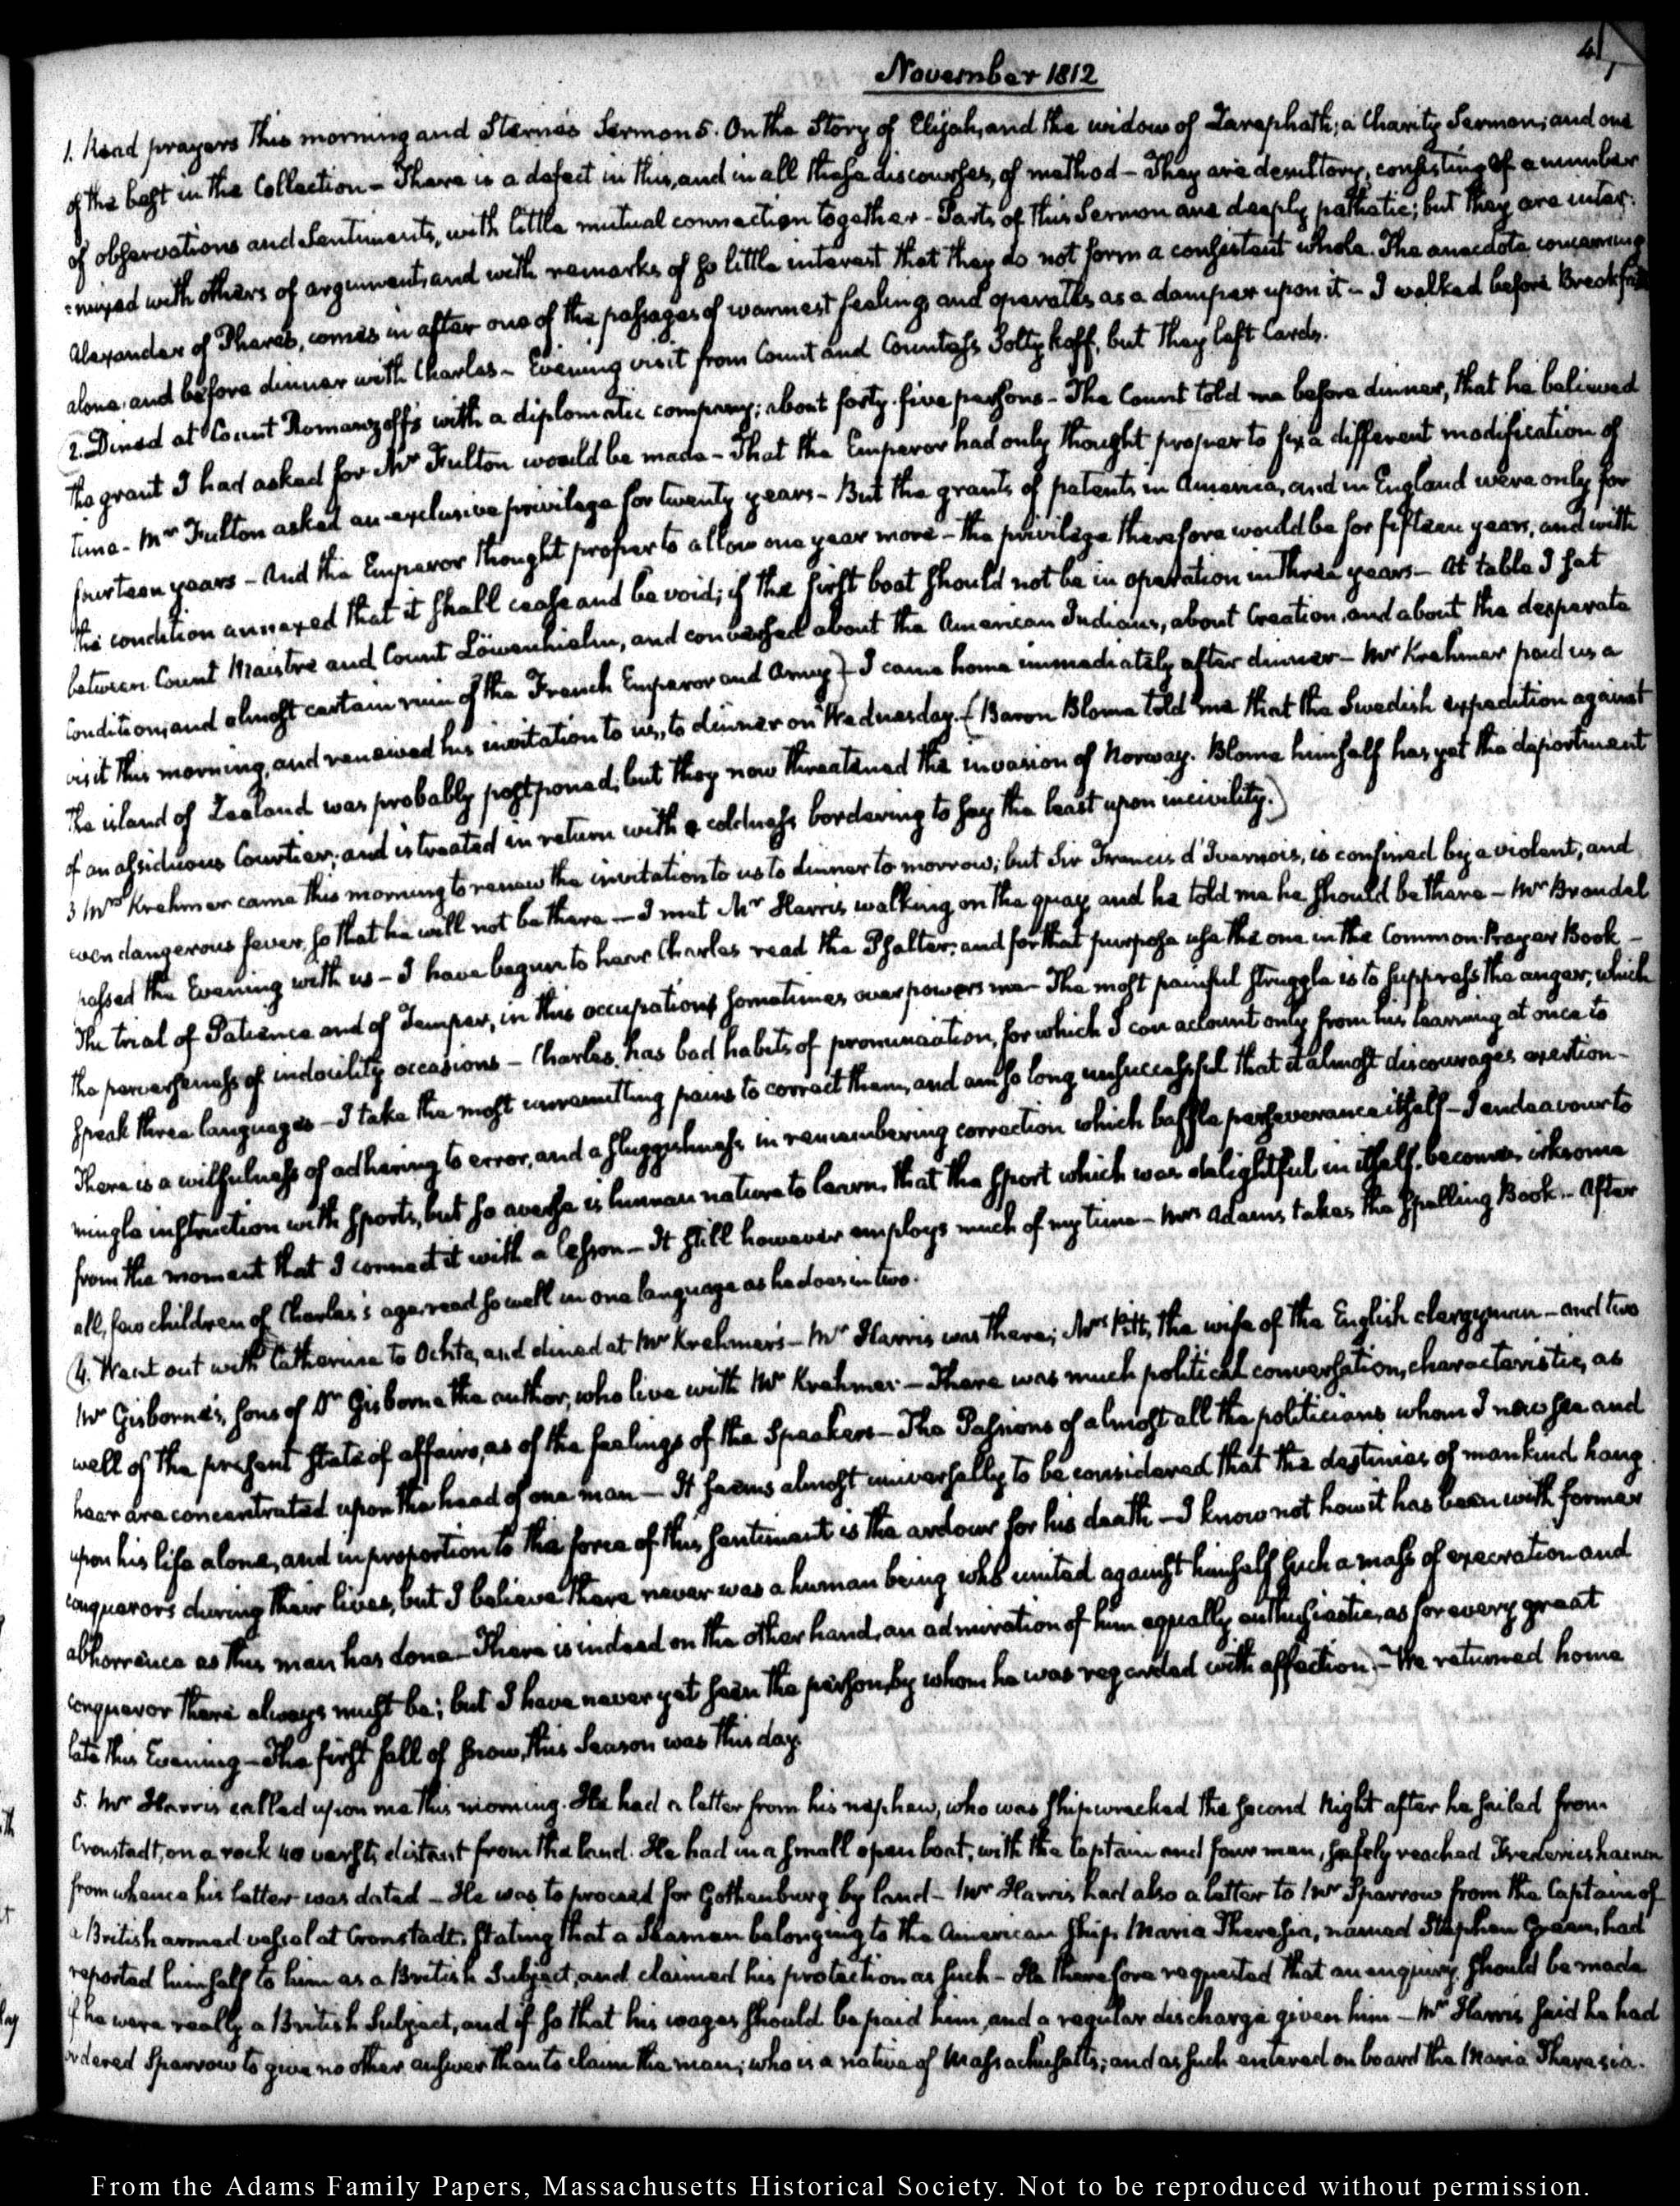 41
November 1812
1. Read prayers this morning and Sterne's Sermon 5. On the Story of Elijah, and the widow of Zarephath; a Charity Sermon; and one
of the best in the Collection – There is a defect in this, and in all these discourses, of method – They are desultory, consisting of a number
of observations and Sentiments, with little mutual connection together – Parts of this Sermon are deeply pathetic; but they are inter-
=mixed with others of argument, and with remarks of so little interest that they do not form a consistent whole. The anecdote concerning
Alexander of Pheres, comes in after one of the passages of warmest feeling, and operates as a damper upon it – I walked before Breakfast
alone, and before dinner with Charles – Evening visit from Count and Countess Soltykoff, but they left Cards.
(2. Dined at Count Romanzoff's with a diplomatic company; about forty-five persons – The Count told me before dinner, that he believed
the grant I had asked for Mr Fulton would be made – That the Emperor had only thought proper to fix a different modification of
time – Mr Fulton asked an exclusive privilege for twenty years – But the grants of patents in America, and in England were only for
fourteen years – And the Emperor thought proper to allow one year more – the privilege therefore would be for fifteen years, and with
the condition annexed that it shall cease and be void; if the first boat should not be in operation in three years – At table I sat
between Count Maistre and Count Löwenhielm, and conversed about the American Indians, about Creation, and about the desperate
Condition, and almost certain ruin of the French Emperor and Army) – I came home immediately after dinner – Mr Krehmer paid us a
visit this morning, and renewed his invitation to us, to dinner on Wednesday. (Baron Blome told me that the Swedish expedition against
the island of Zealand was probably postponed; but they now threatened the invasion of Norway. Blome himself has yet the deportment
of an assiduous Courtier; and is treated in return with a coldness bordering to say the least upon incivility.)
3 Mrs Krehmer came this morning to renew the invitation to us to dinner to morrow; but Sir Francis d'Ivernois, is confined by a violent, and
even dangerous fever, so that he will not be there – I met Mr Harris walking on the quay, and he told me he should be there – Mr Brandel
passed the Evening with us – I have begun to hear Charles read the Psalter; and for that purpose use the one in the Common-Prayer Book –
The trial of Patience and of Temper, in this occupation, sometimes overpowers me – The most painful struggle is to suppress the anger, which
the perverseness of indocility occasions – Charles, has bad habits of pronunciation, for which I can account only from his learning at once to
speak three languages – I take the most unremitting pains to correct them, and am so long unsuccessful that it almost discourages exertion –
There is a wilfulness of adhering to error, and a sluggishness in remembering correction which baffle perseverance itself – I endeavour to
mingle instruction with sports, but so averse is human nature to learn, that the sport which was delightful in itself, becomes irksome
from the moment that I connect it with a lesson – It still however employs much of my time – Mrs Adams takes the Spelling Book – After
all, few children of Charles's age, read so well in one language as he does in two.
(4. Went out with Catherine to Ochta, and dined at Mr Krehmer's – Mr Harris was there; Mrs Pitt, the wife of the English clergyman – and two
Mr Gisborne's, sons of Dr Gisborne the author, who live with Mr Krehmer – There was much political conversation, characteristic, as
well of the present state of affairs, as of the feelings of the Speakers – The Passions of almost all the politicians whom I now see and
hear are concentrated upon the head of one man – It seems almost universally to be considered that the destinies of mankind hang
upon his life alone, and in proportion to the force of this sentiment is the ardour for his death – I know not how it has been with former
conquerors during their lives, but I believe there never was a human being who united against himself such a mass of execration and
abhorrence as this man has done – There is indeed on the other hand, an admiration of him equally enthusiastic, as for every great
conqueror there always must be; but I have never yet seen the person, by whom he was regarded with affection.) – We returned home
late this Evening – The first fall of snow, this Season was this day.
5. Mr Harris called upon me this morning. He had a letter from his nephew, who was shipwrecked the second Night after he sailed from
Cronstadt, on a rock 40 versts distant from the land. He had in a small open boat, with the Captain and four men, safely reached Fredericshamn
from whence his letter was dated – He was to proceed for Gothenburg by land – Mr Harris had also a letter to Mr Sparrow from the Captain of
a British armed vessel at Cronstadt, stating that a Seaman belonging to the American Ship, Maria Theresia, named Stephen Green, had
reported himself to him as a British Subject, and claimed his protection as such – He therefore requested that an enquiry should be made
if he were really a British Subject, and if so that his wages should be paid him, and a regular discharge given him – Mr Harris said he had
ordered Sparrow to give no other answer than to claim the man; who is a native of Massachusetts; and as such entered on board the Maria Theresia.
From the Adams Family Papers, Massachusetts Historical Society. Not to be reproduced without permission.